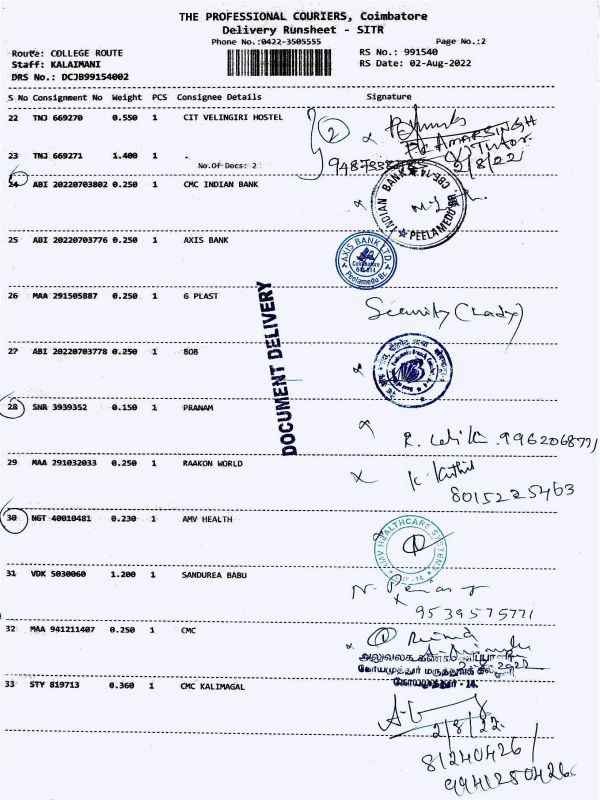 THE PROFESSIONAL COURIERS, Coimbatore
Delivery Runsheet - SITR
Phone No.:0422-3505555 Page No.:2
Route: COLLEGE ROUTE RS No.: 991540
Staff: KALAIMANI RS Date: 02-Aug-2022
DRS No.: DCJB99154002
S No Consignment No Weight PCS Consignee Details Signature
22 TNJ 669270 0.550 1 CIT VELINGIRI HOSTEL
2
AMARSINGH
TUTOR
23 TNJ 669271 1.400 1 -
2/8/22
No.Of Docs: 2
24 ABI 20220703802 0.250 1 CMC INDIAN BANK
INDIAN BANK CBE-14 PEELAMEDU BR.
25 ABI 20220703776 0.250 1 AXIS BANK
AXIS BANK LTD. Coimbatore Peelamedu Br.
26 MAA 291505887 0.250 1 G PLAST
Security (Lady)
DOCUMENT DELIVERY
27 ABI 20220703778 0.250 1 BOB
28 SNR 3939352 0.150 1 PRANAM
29 MAA 291032033 0.250 1 RAAKON WORLD
8015225463
30 NGT 40010481 0.230 1 AMV HEALTH
AMV HEALTHCARE SYSTEMS
31 VDK 5030060 1.200 1 SANDUREA BABU
9539575771
32 MAA 941211407 0.250 1 CMC
கோயமுத்தூர் மருத்துவக்
கோயமுத்தூர் - 14.
33 STY 819713 0.360 1 CMC KALIMAGAL
2/8/22.
81240426/
9941250426